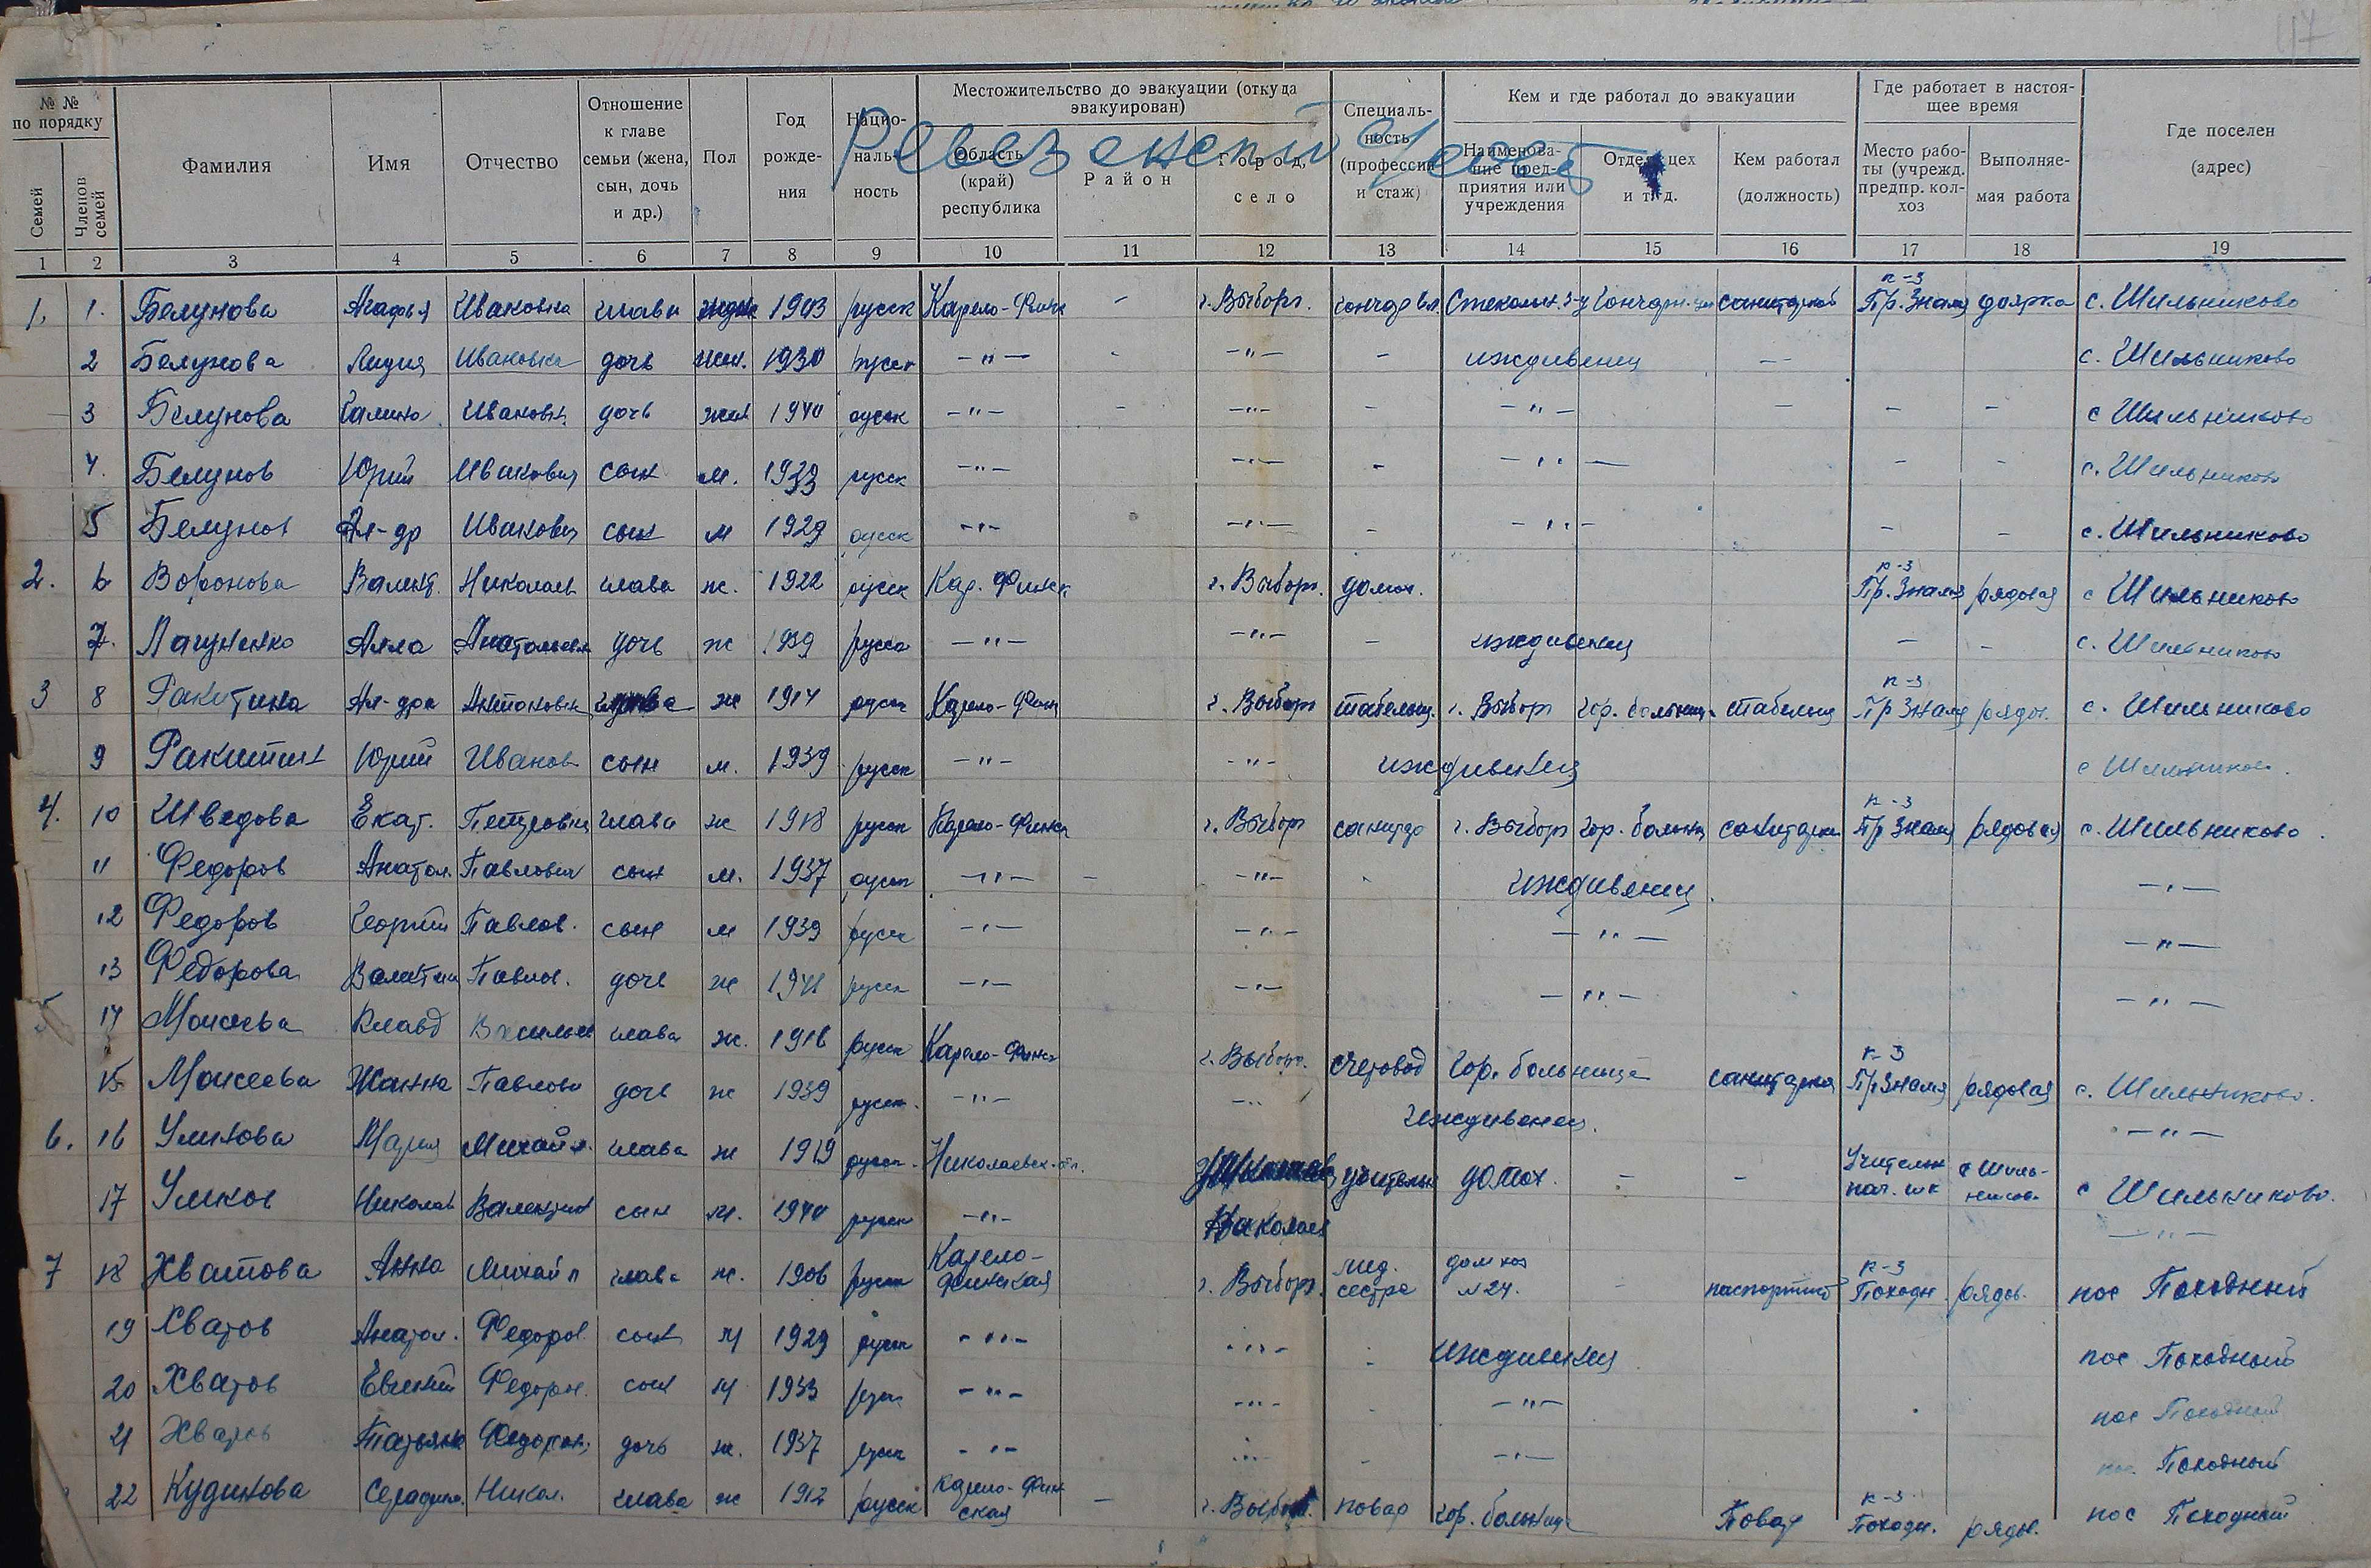 № № по порядку
Семей
Членов семей
Фамилия
Имя
Отчество
Отношение к главе семьи (жена, сын, дочь и др.)
Пол
Год рожде-ния
Нацио-наль-ность
Местожительство до эвакуации (откуда эвакуирован)
Область (край) республика
Район
Город, село
Специаль-ность (профессия и стаж)
Кем и где работал до эвакуации
Наименова-ние пред-приятия или учреждения
Отдел, цех и т. д.
Кем работал (должность)
Где работает в настоя-щее время
Место рабо-ты (учрежд. предпр. кол-хоз
Выполняе-мая работа
Где поселен (адрес)
1 2 3 4 5 6 7 8 9 10 11 12 13 14 15 16 17 18 19
1. 1. Белунова Агафья Ивановна глава жен 1903 русск Карело-Финк - г. Выборг. Стекольн. з-д к-з Пр. Знамя доярка с. Шильниково
2 Белунова Лидия Ивановна дочь жен. 1930 русск -"- - -"- - иждивенец - с. Шильниково
3 Белунова Галина Ивановн. дочь жен 1940 русск -"- - -"- - -"- - - - с Шильниково
4. Белунов Юрий Иванович сын м. 1933 русск -"- -"- - -"- - - с. Шильниково
5 Белунов Ал-др Иванович сын м 1929 русск -"- -"- - -"- - - с. Шильниково
2. 6 Воронова Валент. Николаев глава ж. 1922 русск Кар. Финск г. Выборг. домох. к-з Пр. Знамя рядовая с Шильниково
7. Лагуненко Алла Анатольевн дочь ж 1939 русск -"- -"- - иждивенец - - с. Шильниково
3 8 Ракитина Ал-дра Антоновн глава ж 1914 русск Карело-Финк г. Выборг табельщ. г. Выборг гор. больниц. табельщ к-з Пр Знамя рядов. с. Шильниково
9 Ракитин Юрий Иванов сын м. 1939 русск -"- -"- иждивенец с Шильников.
4. 10 Шведова Екат. Петровна глава ж 1918 русск Карело-Финск г. Выборг санитар г. Выборг гор. больниц санитарка к-з Пр Знамя рядовая с. Шильниково.
11 Федоров Анатол. Павлович сын м. 1937 русск -"- - -"- иждивенец. -"-
12 Федоров Георгий Павлов. сын м 1939 русск -"- -"- -"- -"-
13 Федорова Валентин Павлов. дочь ж 1941 русск -"- -"- -"- -"-
5 14 Моисеева Клавд Васильев глава ж. 1916 русск Карело-Финск г. Выборг. счетовод Гор. больница санитарка к-з Пр Знамя рядовая с. Шильниково.
15 Моисеева Жанна Павловн дочь ж 1939 русск. -"- -"- Иждивенец. -"-
6. 16 Уликова Мария Михайл. глава ж 1919 русск. Николаевск. обл. Николаев учительн домох. - - Учительн нач. шк с Шиль-никово с Шильниково.
17 Уликов Николай Валентин сын м. 1940 русск -"- -"-
7 18 Хватова Анна Михайл глава ж. 1906 русск Карело-финская г. Выборг. мед. сестра дом хоз №24. - паспортист к-з Походн. рядов. пос Походный
19 Хватов Анатол. Федоров. сын м 1929 русск -"- -"- - иждивенец пос Походный
20 Хватов Евгений Федоров. сын м 1933 русск -"- -"- -"- пос Походный
21 Хватов Татьяна Федоровн. дочь ж. 1937 русск -"- -"- - -"- пос. Походный
22 Кудинова Серафим. Никол. глава ж 1912 русск Карело-Фин ская - г. Выборг. повар гор. больница Повар к-з Походн. рядов. пос Походный